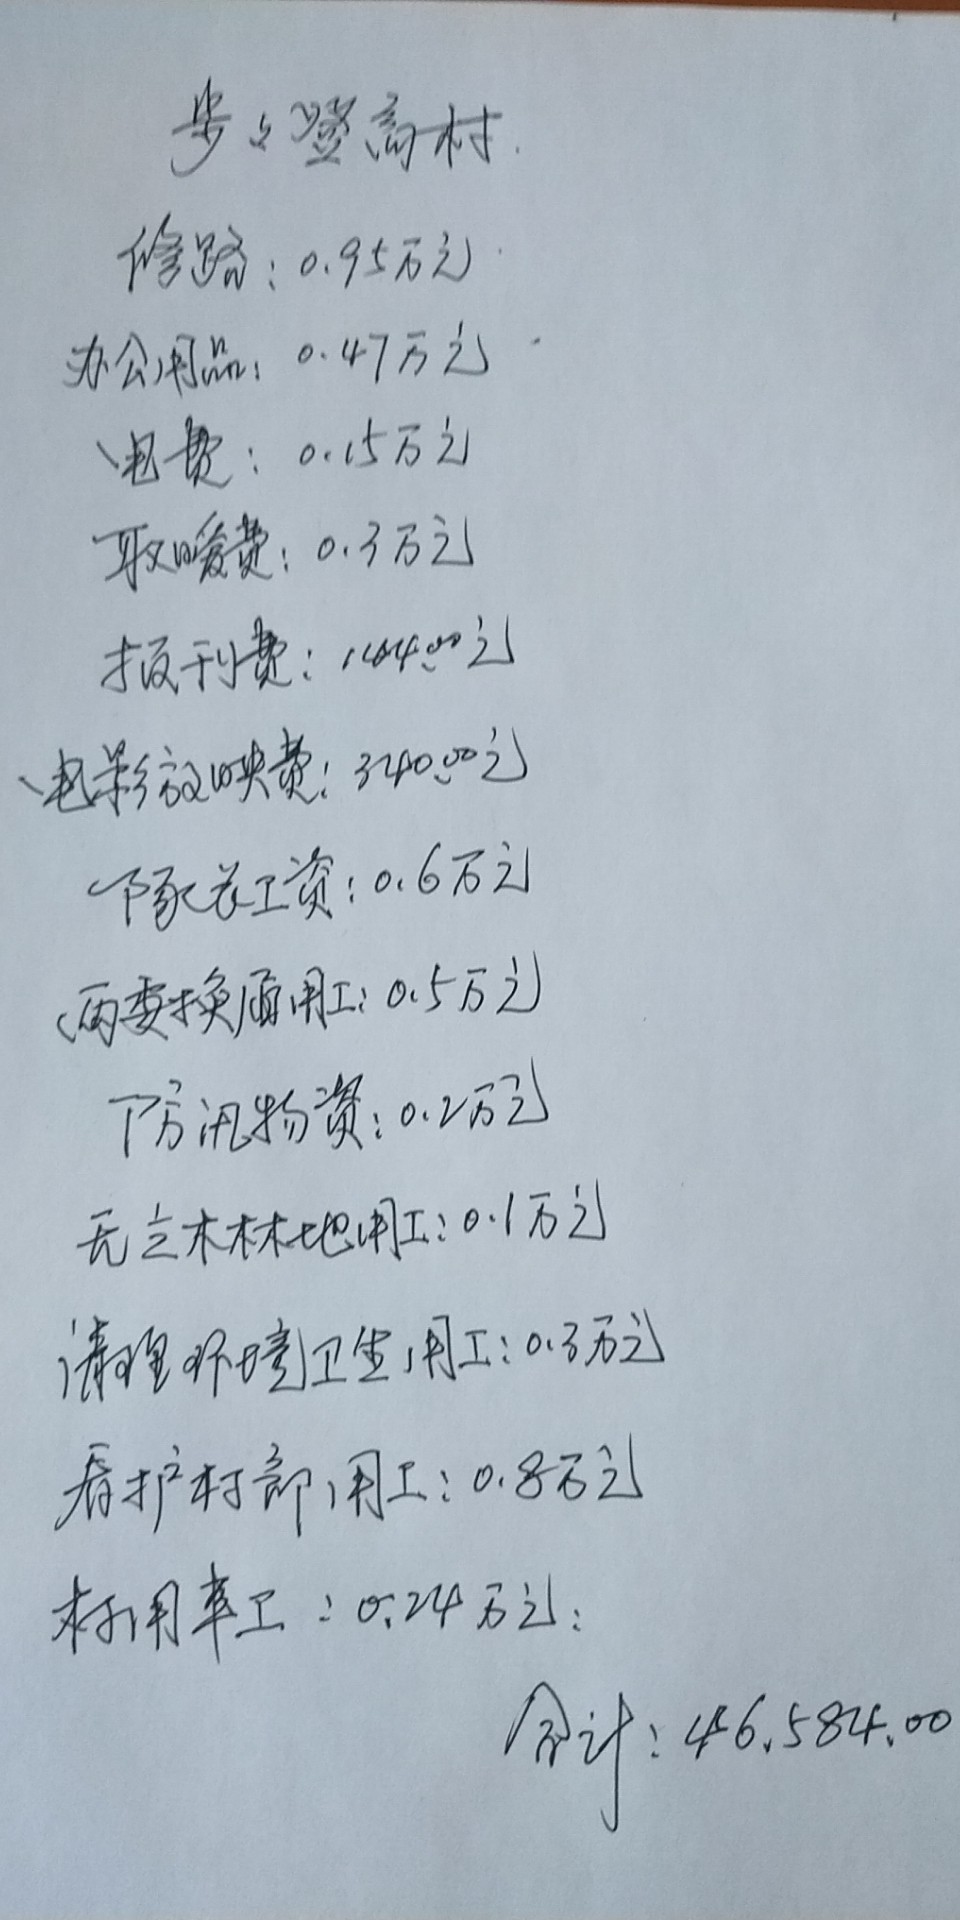 步々登高村
修路：0.95万元
办公用品：0.47万元
电费：0.15万元
取暖费：0.3万元
报刊费：144.00元
电影放映费：340.00元
工资：0.6万元
两委换届用工：0.5万元
防汛物资：0.2万元
无立木林地用工：0.1万元
清理环境卫生用工：0.3万元
看护村部用工：0.8万元
村用工：0.24万元：
合计：46.584.00